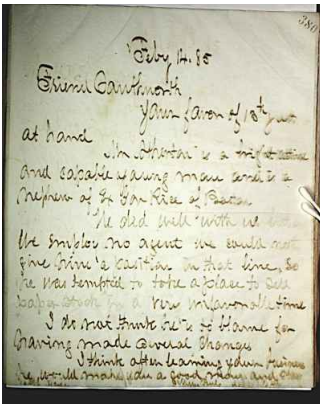 380
Feby 14. 85
Friend Cawthworth
Your favor of 13th
at hand
Mr Atherton is a bright
and capable young man and is a
Nephew of Ex Gov Rice of Boston
He did well with us
We employ no agent we could not
give him a position in that line, so
he was tempted to take a place to sell
paper stock in a very unfavorable time
I do not think he is to blame for
having made several changes
I think after learning your business
he would make you a good man and